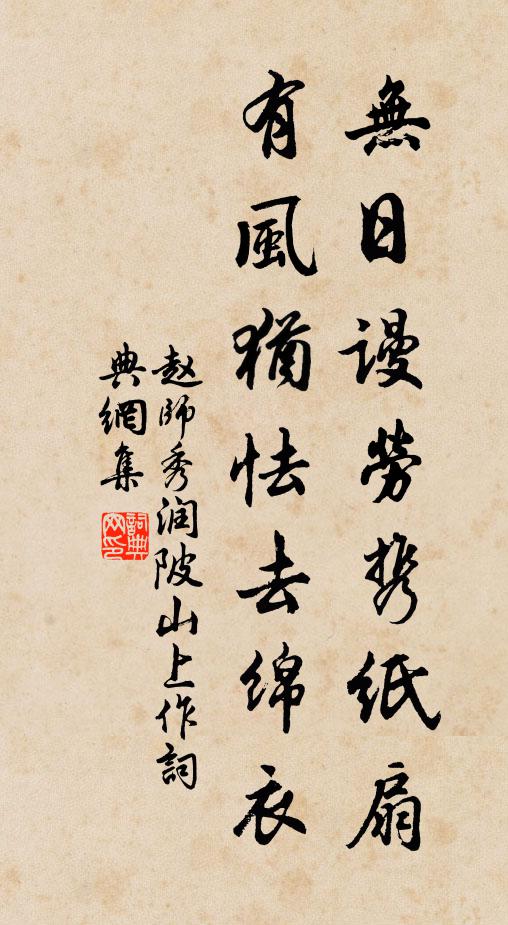 無日謾勞携紙扇
有風猶怯去綿衣
赵師秀润陂山上作詞
典網集
詞典
网印